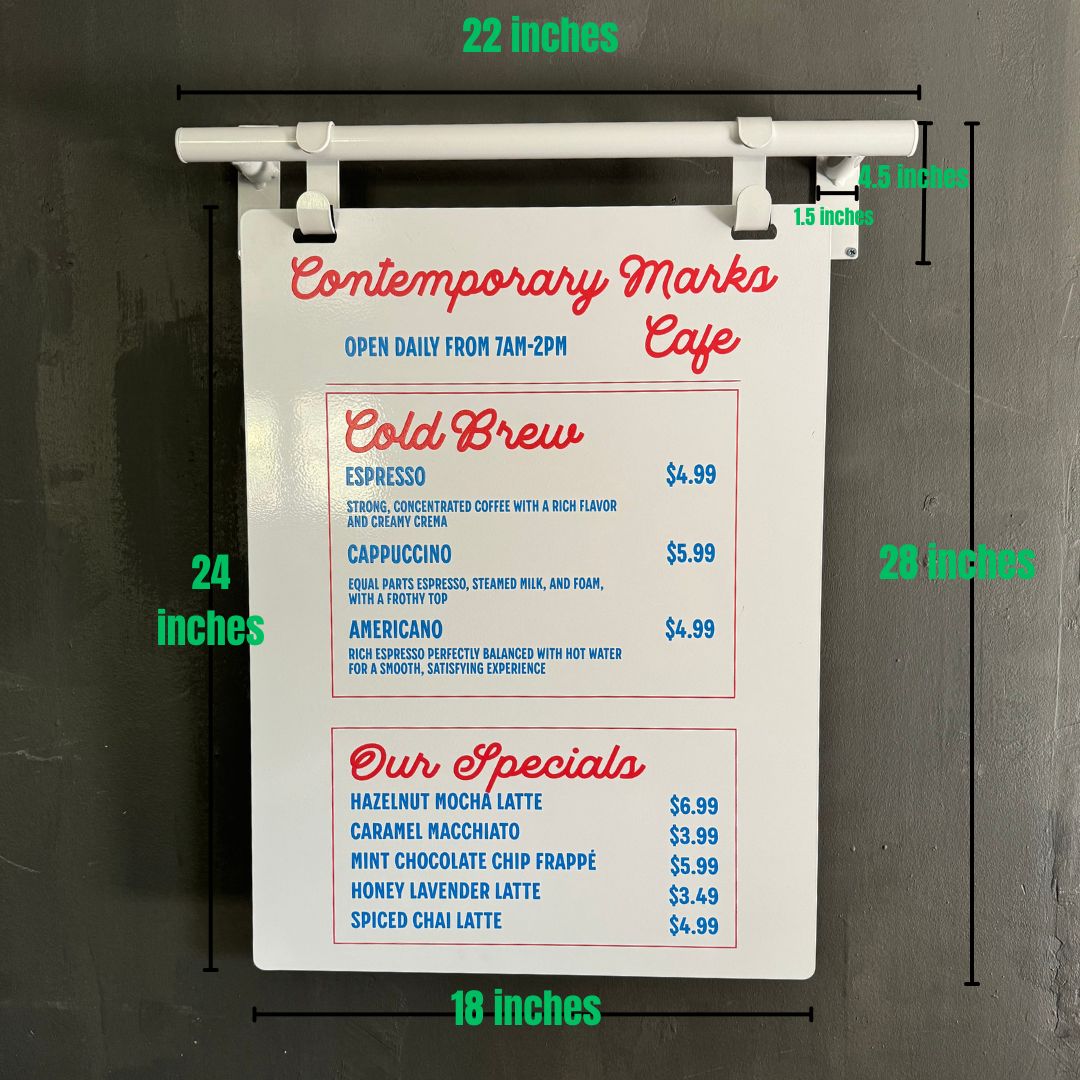 22 inches
4.5 inches
1.5 inches
Contemporary Marks
Cafe
OPEN DAILY FROM 7AM-2PM
Cold Brew
ESPRESSO $4.99
STRONG, CONCENTRATED COFFEE WITH A RICH FLAVOR
AND CREAMY CREMA
CAPPUCCINO $5.99
EQUAL PARTS ESPRESSO, STEAMED MILK, AND FOAM,
WITH A FROTHY TOP
24
inches
28 inches
AMERICANO $4.99
RICH ESPRESSO PERFECTLY BALANCED WITH HOT WATER
FOR A SMOOTH, SATISFYING EXPERIENCE
Our Specials
HAZELNUT MOCHA LATTE $6.99
CARAMEL MACCHIATO $3.99
MINT CHOCOLATE CHIP FRAPPÉ $5.99
HONEY LAVENDER LATTE $3.49
SPICED CHAI LATTE $4.99
18 inches